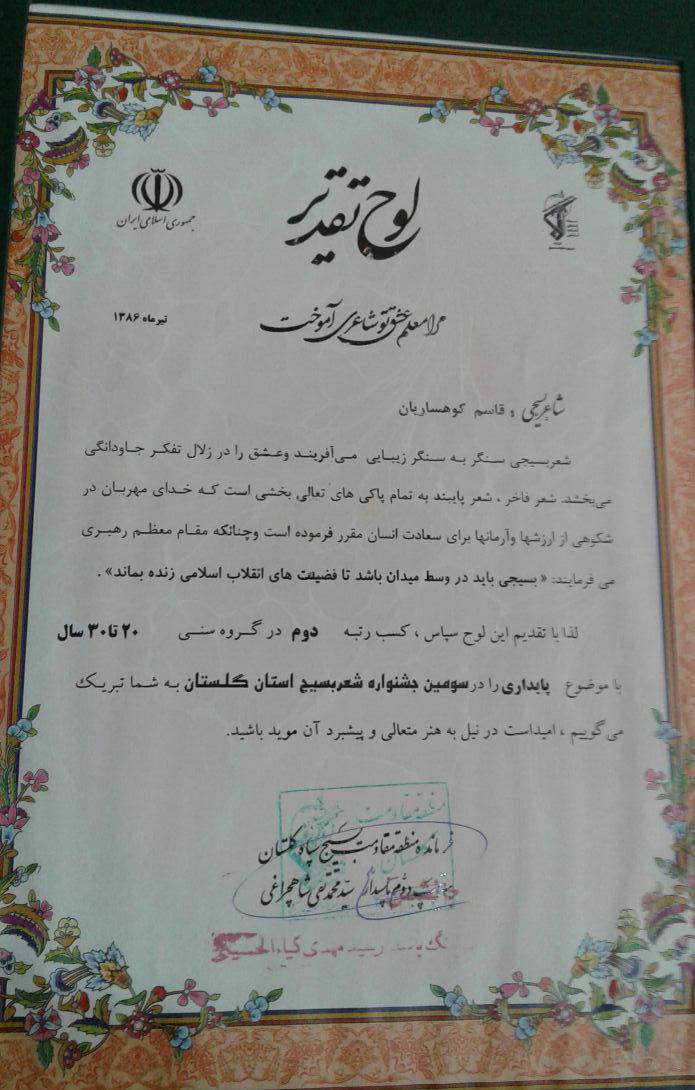 لوح تقدیر
جمهوری اسلامی ایران
مرا معلم عشق تو شاعری آموخت
تیرماه ۱۳۸۶
شاعر بسیجی ؛ قاسم کوهساریان
شعربسیجی سنگر به سنگر زیبایی می‌آفریند وعشق را در زلال تفکر جاودانگی
می‌بخشد. شعر فاخر ، شعر پایبند به تمام پاکی های تعالی بخشی است که خدای مهربان در
شکوهی از ارزشها وآرمانها برای سعادت انسان مقرر فرموده است وچنانکه مقام معظم رهبری
می فرمایند: « بسیجی باید در وسط میدان باشد تا فضیلت های انقلاب اسلامی زنده بماند» .
لذا با تقدیم این لوح سپاس ، کسب رتبه دوم در گروه سنی ۲۰ تا ۳۰ سال
با موضوع پایداری را در سومین جشنواره شعربسیج استان گلستان به شما تبریک
می‌گوییم ، امیداست در نیل به هنر متعالی و پیشبرد آن موید باشید.
فرمانده منطقه مقاومت بسیج سپاه گلستان
سرتیپ دوم پاسدار سید محمد تقی شاهچراغی
سید مهدی کیاءالحسینی